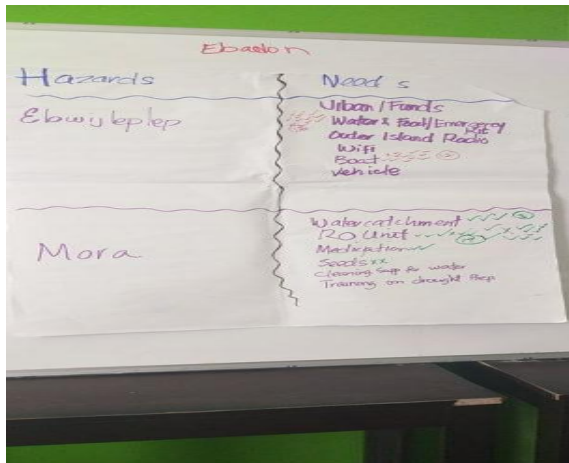 Ebadon
Hazards
Needs
Ebwijleplep
Urban/Funds
Water & Food/Emergency
Kit
Outer Island Radio
Wifi
Boat
vehicle
Mora
Water catchment
RO Unit
Medication
Seeds
Cleaning Supp for water
Training on drought Prep